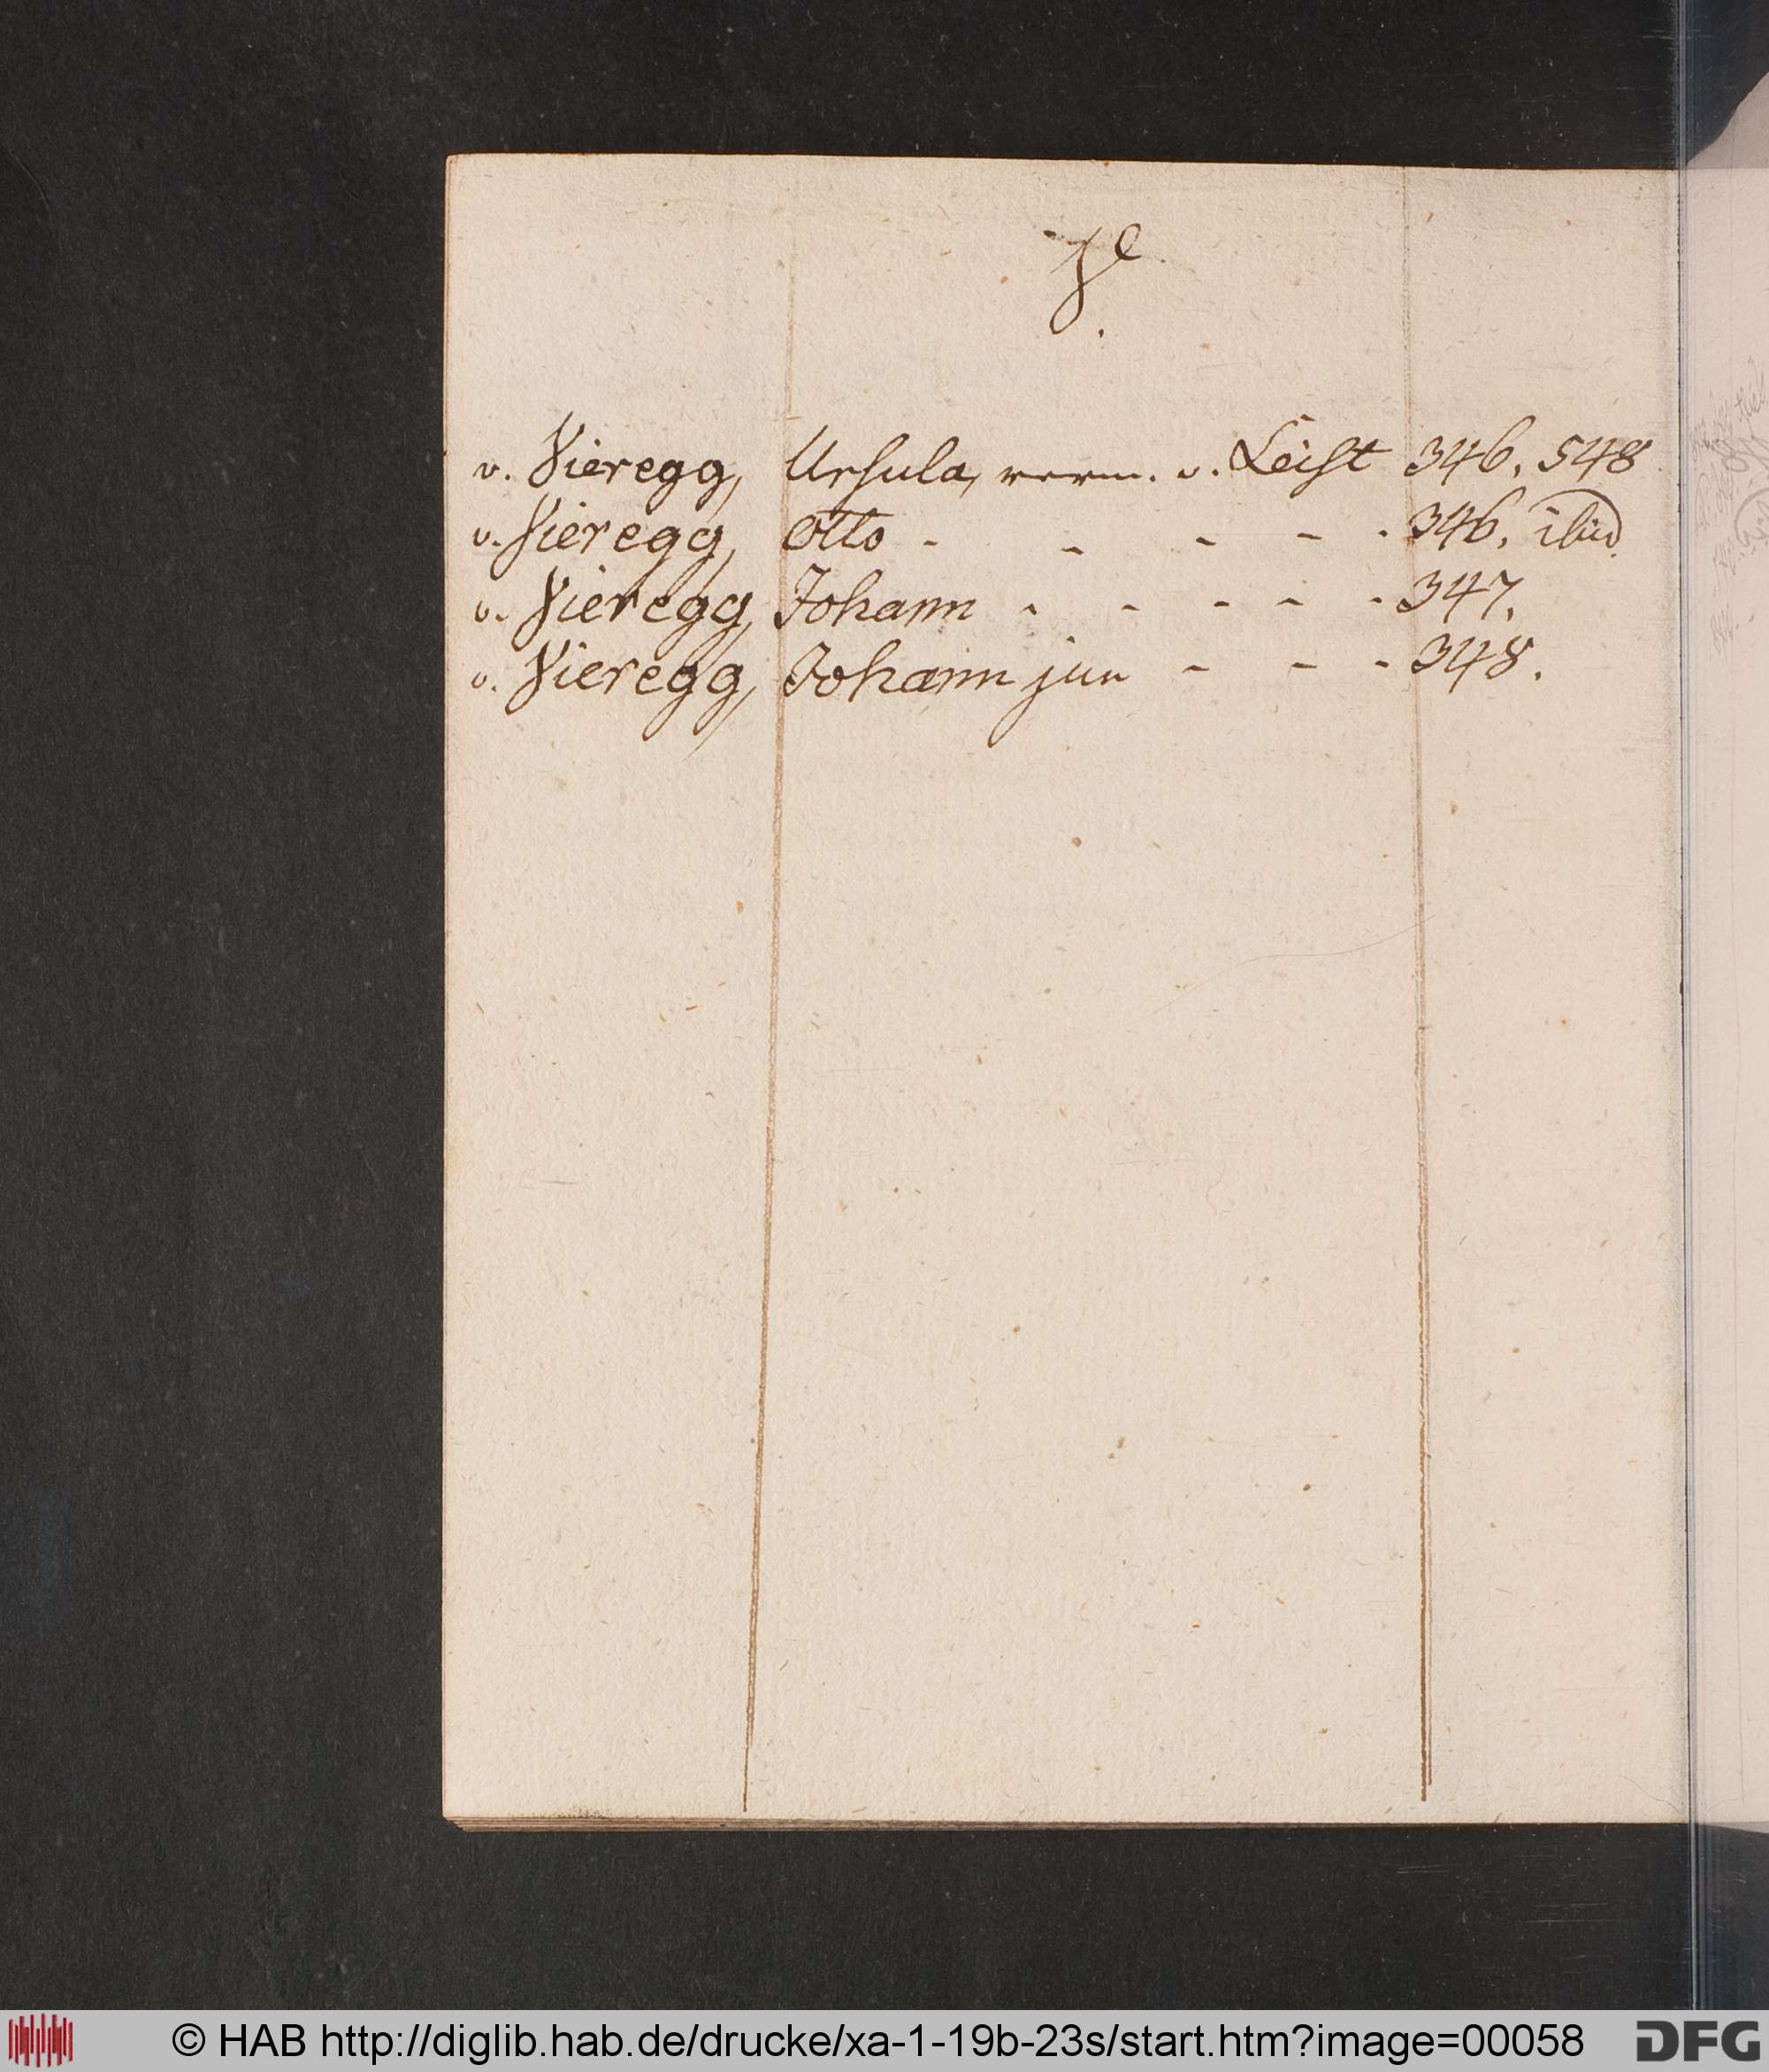 V.
v. Vieregg, Ursula, verm. v. Leist 346. 548
v. Vieregg, Otto - - - - - 346. ibid.
v. Vieregg, Johann - - - - - 347.
v. Vieregg, Johann jun - - - 348.
© HAB http://diglib.hab.de/drucke/xa-1-19b-23s/start.htm?image=00058
DFG